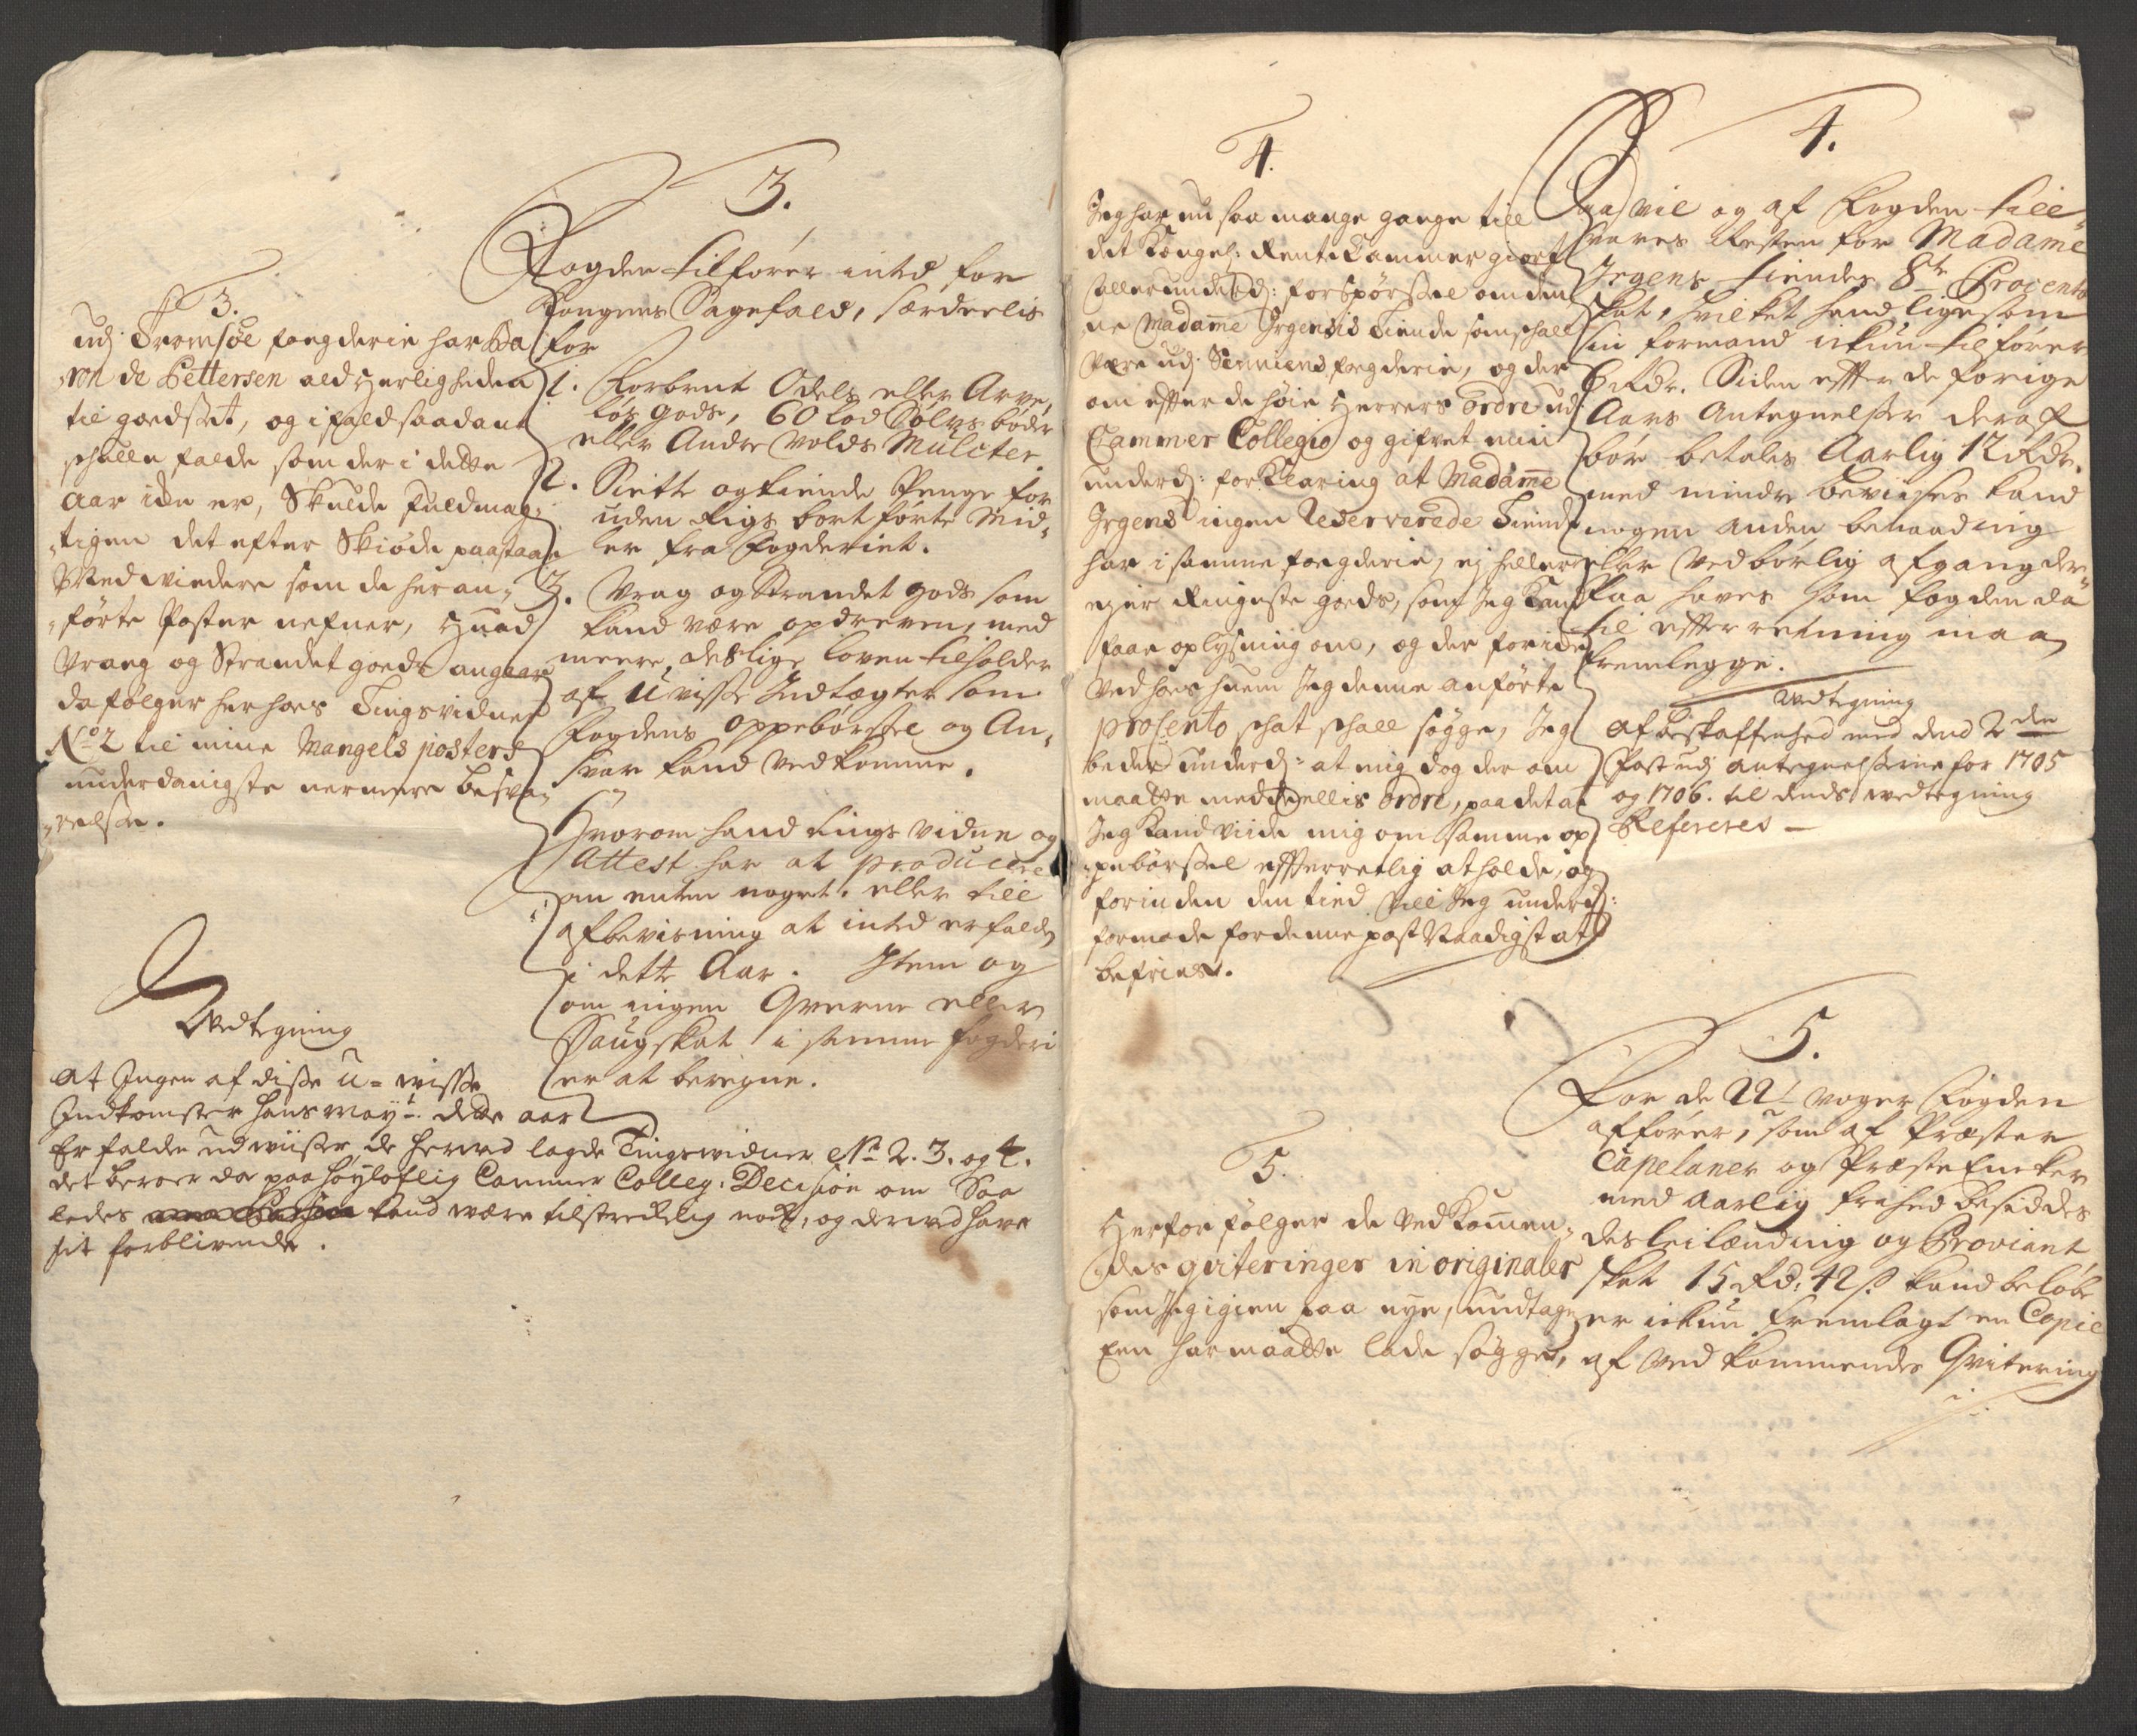 3.
udj Tromsøe foegderie har Ba
ron de Pettersen ald Herligheden
til goedset, og i fald saadant
schulle falde som der i dette
Aar icke er, Skulde fuldmæg
tigen det efter Skiøde paastaae
Med videre som de her an
førte Poster nefner, Huad
Vrag og Strandet goeds angaar
da følger her hoes Tingsvidner
No 2 til mine Mangels posters
underdanigste nermere besva
relse.
3.
Fogden tilfører inted for
Kongens Sagefald, særdeelis
for
1. Forbrut Odels eller Arve,
løs gods, 60 lod Sølvs bøder
eller Andre Volds Mulcter
2. Siette og tiende Penge for
uden Rigs bort førte Mid
er fra Fogderiet.
3. Vrag og Strandet gods som
kand være opdreven, med
meere deslige loven tilholder
af Uvisse Indtægter som
Fogdens oppebørsel og An
svar kand vedkomme.
Hvorom hand tings vidne og
Attest har at producere
om enten noget eller till
afbevisning at inted er falden
i dette Aar. Item og
om ingen Qverne eller
Saugskat i samme fogderi
er at beregne.
Vedtegning
At Ingen af disse u-wisse
Indkomster Hans May.t dette aar
Er falden udwiser de herved lagde Tingswidner No 2. 3. og 4.
det beroer da paa høyloflig Cammer Colleg: Decision om Saa
ledes kand være tilstreckelig nock, og derved have
sit forblivende.
4.
Jeg har nu saa mange gange till
det Kongel: Rente Cammer giort
allerunderd: forspørsel om den
ne Madame Irgensis tiende som schall
være udj Senniens fogderie, og der
om efter de høie Herrers ordre ud
Cammer Collegio og gifvet min
underd: forklaring at Madame
Irgens ingen Reserverede Tiende
har i samme foegderie, ej heller
ejer Ringeste goeds, som Jeg kand
faae oplysning om, og der for icke
ved hoes huem Jeg denne anførte
prosento schat schall søgge, Jeg
beder underd: at mig dog der om
maatte meddellis ordre, paa det at
Jeg kand viide mig om samme op
pebørsel efterretlig at holde, og
forinden den tied vill Jeg underd:
formode for denne post Naadigst at
befries.
4.
Saa vil og af Fogden till
svares Resten for Madame
Irgens tiendes 8te Procento
skat, hvilket hand ligesom
sin formand ickun tilfører
6 Rdr. Siden efter de forige
Aars Antegnelser deraf
bør betales Aarlig 12 Rdr.
med mindre bevises kand
nogen anden benaading
eller vedbørlig afgang der
paa haves som fogden da
til efterretning maa
fremlegge.
Vedtegning
Af beskaffenhed med dend 2den
Post udj antegnelserne for 1705
og 1706. til dends vedtegning
Refereres
5.
Herfor følger de vedkommen
des qviteringer in originaler
som Jeg igien paa nye, undtage
Een har maatte lade søgge,
5.
For de 22 1/2 voger Fogden
affører, som af Præster
Capelaner og Præste Encker
med Aarlig frihed besiddes
des leilænding og Proviant
skat 15 Rd: 42 s kand beløbe
er ickun fremlagt en Copie
af vedkommendes Qvitering